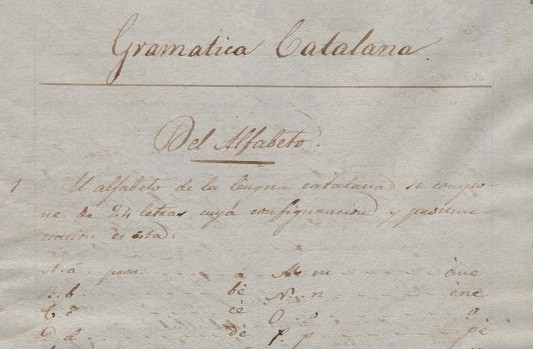 Gramatica Catalana.
Del Alfabeto.
1 El alfabeto de la lengua catalana se compo-
ne de 24 letras cuya configuracion y pronun-
ciacion es esta:
A. a. pron. a M. m ème
B. b. bé N. n ène
C. c. cé O. o. o
D. d. dé P. p. pé